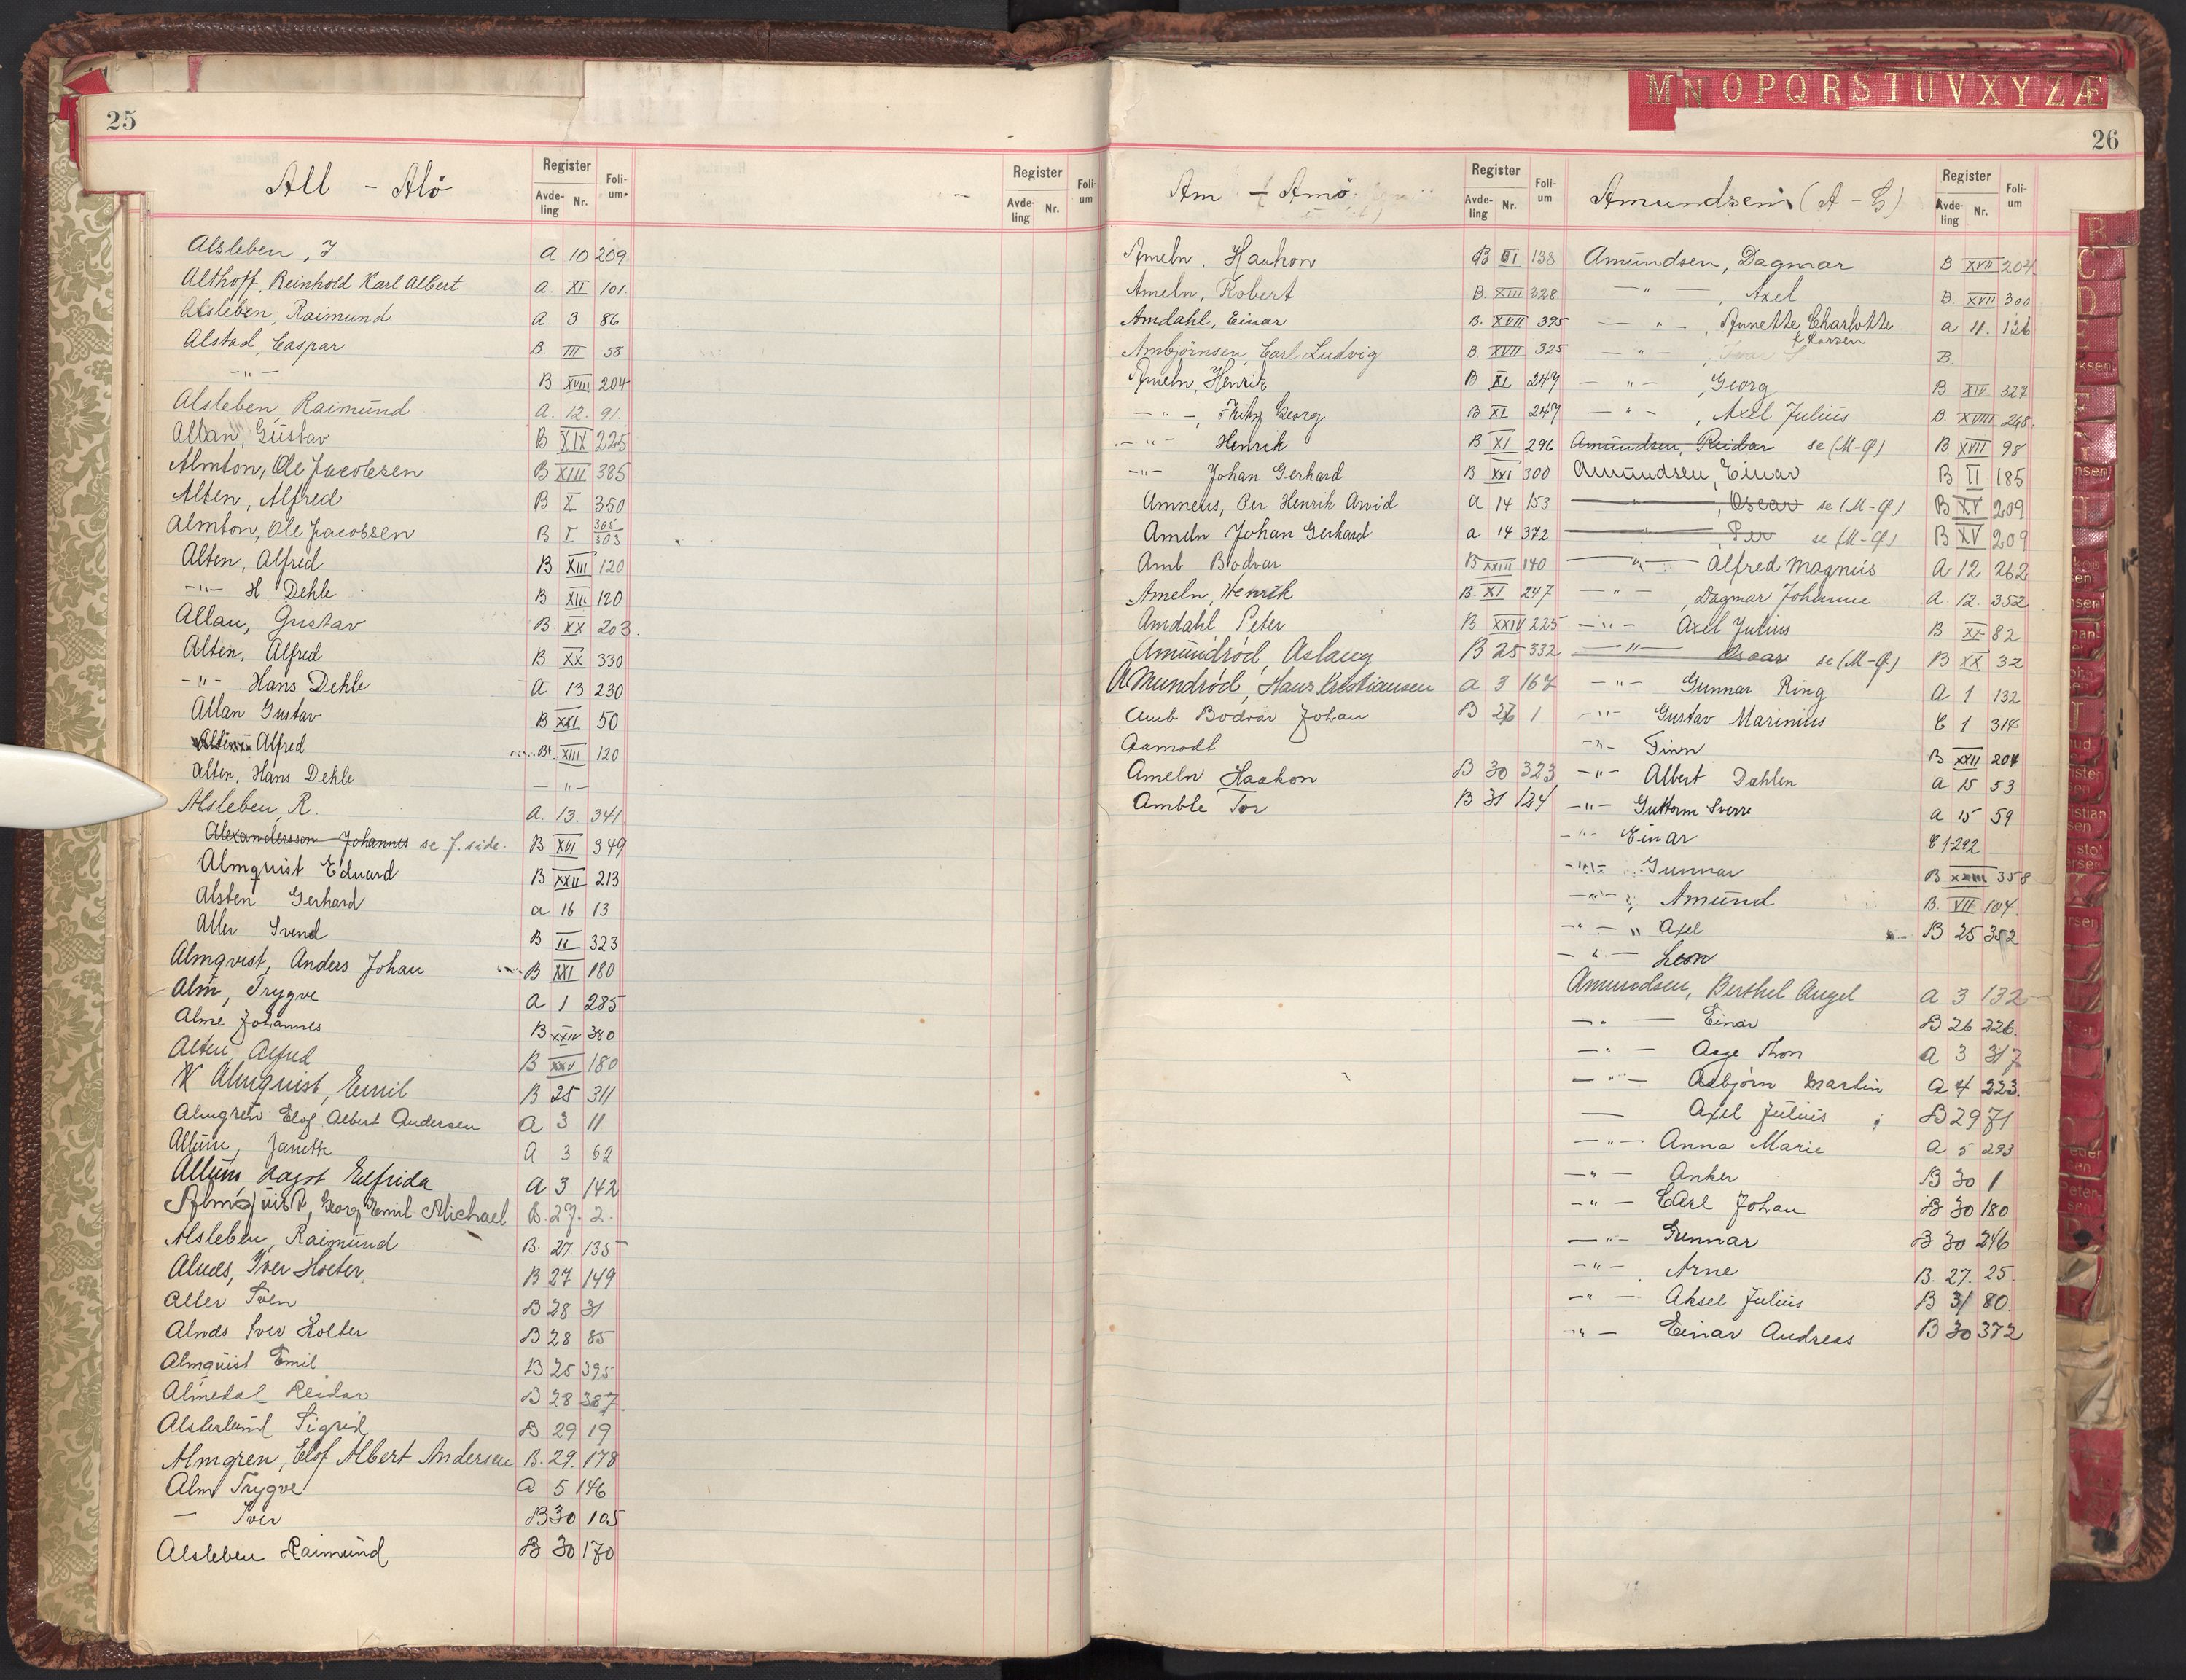 25
All - Alö
Register
Avde-ling Nr. Foli-um
Register
Avde-ling Nr. Foli-um
Alsleben, J. A 10 209
Althoff, Reinhold Karl Albert A. XI 101.
Alsleben, Raimund A. 3 86
Alstad, Caspar B. III 58
-"- B XVIII 204
Alsleben, Raimund A. 12. 91.
Allan, Gustav B XIX 225
Almton, Ole Jacobsen B XIII 385
Alten, Alfred B X 350
Almton, Ole Jacobsen B I 305 303
Alten, Alfred B XIII 120
-"- H. Dehle B XIII 120
Allan, Gustav B. XX 203.
Alten, Alfred B XX 330
-"- Hans Dehle A 13 230
Allan Gustav B XXI 50
Alten Alfred B XIII 120
Alten, Hans Dehle -"-
Alsleben, R. A. 13. 341.
Alexandersson Johannes se f. side. B XVI 349
Almquist Eduard B XXII 213
Alsten Gerhard a 16 13
Aller Svend B II 323
Almqvist, Anders Johan B XXI 180
Alm, Trygve A 1 285
Alme Johannes B XXIV 380
Alten, Alfred B XXV 180
Almquist, Emil B 25 311
Almgren Elof Albert Andersen A 3 11
Allum, Janitte A 3 62
Allum, Aagot Elfrida A 3 142
Almquist, Georg Emil Michael B. 27. 2.
Alsleben, Raimund B. 27. 135
Alnæs, Iver Holter B 27 149
Aller Sven B 28 31
Alnæs Iver Holter B 28 85
Almquist Emil B 25 395
Almedal Reidar B 28 387.
Alsterlund Sigrid B 29 19
Almgren, Elof Albert Andersen B. 29. 178
Alm Trygve A 5 146
- Iver B 30 105
Alsleben Raimund B 30 170
M N O P Q R S T U V X Y Z Æ
26
Am - Amö
Register
Avde-ling Nr. Foli-um
Ameln, Haakon B III 138
Ameln, Robert B. XIII 328
Amdahl, Einar B. XVII 395
Ambjörnsen, Carl Ludvig B XVII 325
Ameln, Henrik B XI 247
-"-, Fritz Georg B XI 247
-"- Henrik B XI 296
-"- Johan Gerhard B XXI 300
Amneus, Per Henrik Arvid A 14 153
Ameln Johan Gerhard a 14 372
Amb Bodvar B XXIII 140
Ameln, Henrik B. XI 247
Amdahl Peter B XXIV 225
Amundröd, Aslaug B 25 332
Amundröd, Hans Kristiansen a 3 167
Amb Bodvar Johan B 26 1
Aamodt
Ameln Haakon B 30 323
Amble Tor B 31 124
Amundsen (A - L)
Register
Avde-ling Nr. Foli-um
Amundsen, Dagmar B XVII 204.
-"-, Axel B. XVII 300
-"-, Annette Charlotte f. Larsen a 11. 126
-"-, Ivar B.
-"-, Georg B XIV 327
-"-, Axel Julius B. XVIII 248.
Amundsen, Reidar se (M-Ø) B. XVII 98
Amundsen, Einar B II 185
-"-, Oscar se (M-Ø) B XV 209
-"-, Per se (M-Ø) B XV 209
-"- Alfred Magnus A 12 262
-"-, Dagmar Johanne A. 12. 352.
-"- Axel Julius B XX 82
-"- Oscar se (M-Ø) B XX 32
-"- Gunnar Ring A 1 132
-"- Gustav Marinius C 1 314
-"- Finn B XXII 204
-"- Albert Dahlen a 15 53
-"- Guttorm Sverre a 15 59
-"- Einar C 1 292
-"- Gunnar B XXIII 358
-"-, Amund B. VII 104.
-"- Axel B 25 352
-"- Leon
Amundsen, Berthel Angel A 3 132
-"- Einar B 26 226.
-"- Aage Thon A 3 317
-"- Asbjørn Martin A 4 223.
- Axel Julius B 29 71
-"- Anna Marie A 5 293
-"- Anker B 30 1
-"- Carl Johan B 30 180
-"- Gunnar B 30 246
-"- Arne B. 27. 25.
-"- Aksel Julius B 31 80.
-"- Einar Andreas B 30 372